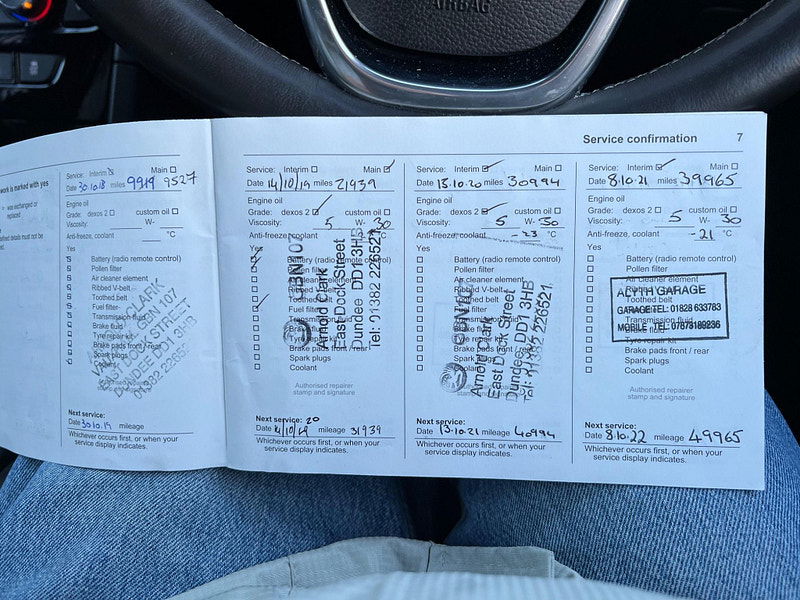 AIRBAG
Service confirmation 7
work is marked with yes
was exchanged or
replaced
defined details must be
Service: Interim Main
Date 30.10.18 miles 9919 9527
Engine oil
Grade: dexos 2 custom oil
Viscosity: W-
Anti-freeze, coolant °C
Yes
Battery (radio remote control)
Pollen filter
Air cleaner element
Ribbed V-belt
Toothed belt
Fuel filter
Transmission fluid
Brake fluid
Tyre repair kit
Brake pads front / rear
Spark plugs
DUNDEE DD1 3HB
Next service:
Date 30.10.19 mileage
Whichever occurs first, or when your
service display indicates.
Service: Interim Main
Date 14/10/19 miles 21939
Engine oil
Grade: dexos 2 custom oil
Viscosity: 5 W- 30
Anti-freeze, coolant °C
Yes
Battery (radio remote control)
Pollen filter
Air cleaner element
Ribbed V-belt
Toothed belt
Fuel filter
Transmission fluid
Brake fluid
Tyre repair kit
Brake pads front / rear
Spark plugs
Coolant
Arnold Clark
East Dock Street
Dundee DD1 3HB
Tel: 01382 226521
Authorised repairer
stamp and signature
Next service: 20
Date 14/10/19 mileage 31939
Whichever occurs first, or when your
service display indicates.
Service: Interim Main
Date 13.10.20 miles 30994
Engine oil
Grade: dexos 2 custom oil
Viscosity: 5 W- 30
Anti-freeze, coolant -23 °C
Yes
Battery (radio remote control)
Pollen filter
Air cleaner element
Ribbed V-belt
Toothed belt
Fuel filter
Transmission fluid
Brake fluid
Tyre repair kit
Brake pads front / rear
Spark plugs
Coolant
Arnold Clark
East Dock Street
Dundee DD1 3HB
Tel: 01382 226521
Authorised repairer
stamp and signature
Next service:
Date 13.10.21 mileage 40994
Whichever occurs first, or when your
service display indicates.
Service: Interim Main
Date 8.10.21 miles 39965
Engine oil
Grade: dexos 2 custom oil
Viscosity: 5 W- 30
Anti-freeze, coolant -21 °C
Yes
Battery (radio remote control)
Pollen filter
Air cleaner element
Ribbed V-belt
Toothed belt
Fuel filter
Transmission fluid
Brake fluid
Tyre repair kit
Brake pads front / rear
Spark plugs
Coolant
GARAGE
GARAGE TEL: 01828 633783
MOBILE TEL: 07873189236
Authorised repairer
stamp and signature
Next service:
Date 8.10.22 mileage 49965
Whichever occurs first, or when your
service display indicates.